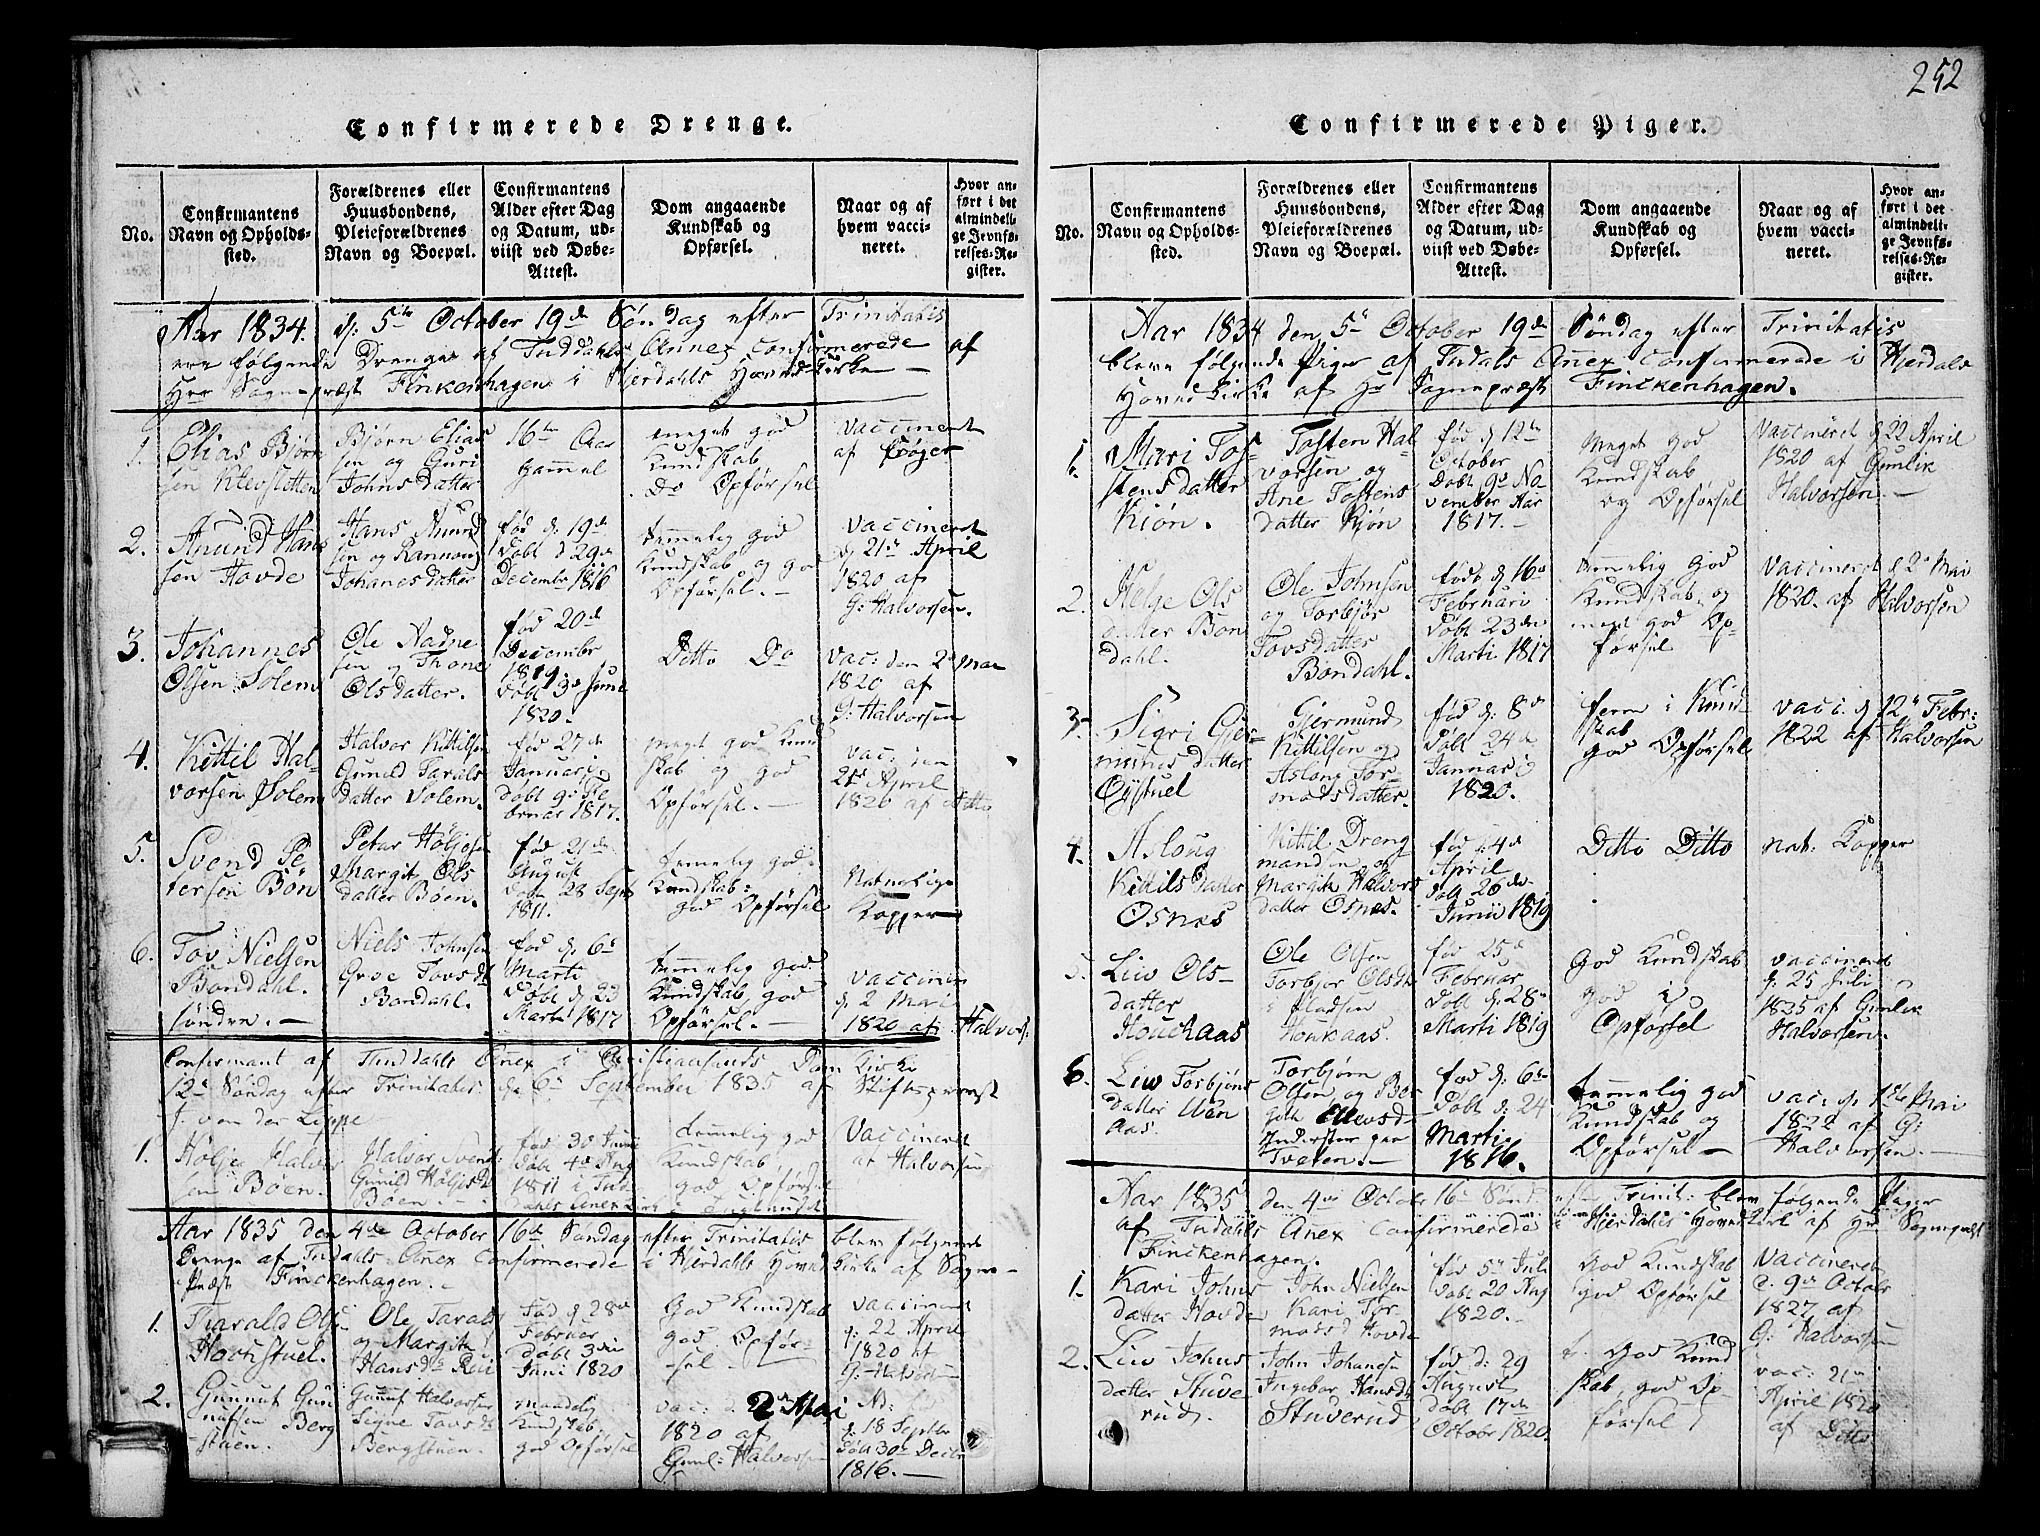 252
Confirmerede Drenge.
No.
Confirmantens
Navn og Opholds-
sted.
Forældrenes eller
Huusbondens,
Pleieforældrenes
Navn og Boepæl.
Confirmantens
Alder efter Dag
og Datum, ud-
viist ved Døbe-
Attest.
Dom angaaende
Kundskab og
Opførsel.
Naar og af
hvem vacci-
neret.
Hvor an-
ført i det
almindeli-
ge Jevnfø-
relses-Re-
gister.
Aar 1834. d: 5te October 19de Søndag efter Trinitatis
ere følgende Drenge af Tuddahls Annex Confirmerede af
Her Sognepræst Finkenhagen i Hjerdahls Hovedkirke
1.
Elias Bjørn
sen Klevstotten
Bjørn Elias
sen og Guri
Johns datter
16te Aar
gammel
meget god
Kundskab
Do Opførsel
vaccineret
af Crøger
2.
Anund Hans
sen Hovde
Hans Anund
sen og Rannoug
Johanes datter
fød d. 19de
Døbt d 29de
Decembr 1816
temmelig god
Kundskab og god
Opførsel.
Vaccineret
d. 21de April
1820 af
G: Halvorsen.
3.
Johannes
Olsen Solem
Ole Aadne
sen og Thone
Olsdatter.
fød 20de
Decembr
1819.
Døbt 3de Juni
1820.
Ditto Do
Vac: den 2de Mai
1820 af
G: Halvorsen
4.
Kittil Hal-
vorsen Solem
Halvor Kittilsen
Gunild Tarals
datter Solem.
fød 27de
Januari
Døbt 9de Fe
bruar 1817.
meget god Kund
skab og god
Opførsel.
vac: den
21de April
1820 af Ditto
5.
Svend Pe
tersen Bøn
Peter Høljesen
Margit Ols
datter Bøen.
fød 21de
August
Døbt 28 Sept
1811.
temmelig god
Kundskab:
god Opførsel
Naturlige
Kopper
6.
Tov Nielsen
Bondahl.
søndre.
Niels Johnsen
Groe Tovsdt
Bondahl.
fød d. 6te
Marti
Døbt d. 23
Marti 1817
temmelig god
Kundskab, god
Opførsel.
vaccineret
d. 2 Mai
1820 af Halvors:
Confirmant af Tuddahls Anex i Christiansands Dom Kirke
12te Søndag efter Trinitatis den 6te September 1835 af Stiftsprovst
J. von der Lippe
1.
Hølje Halvor
sen Bøen.
Halvor Svends
Gunild Høljesdt
Bøen.
fød 30 Juni
Døbt 4de Aug
1811 i Tud
dahls Anex Kirke
temmelig god
Kundskab
god Opførsel
i Tugthuset
Vaccineret
af Halvorsen
Aar 1835 den 4de October 16de Søndag efter Trinitatis blev følgende
Drenge af Tuddahls Anex Confirmerede i Hjerdahls Hoved Kirke af Sogne-
Præst Finckenhagen.
1.
Tharald Ols
Hovhstuel.
Ole Tarals
og Margith
Hansdtr Rui
Fød d 28de
Februar
Døbt 3die
Juni 1820
God Kundskab
god Opfør-
sel.
Vaccineret
d: 22 April
1820 af
G. Halvorsen
2.
Gunnuf Gun
nufsen Berg
stuen.
Gunnuf Halvorsen
Signe Tovsdt
Bergstuen.
maadelig
Kundskab
god Opførsel
vac: 2 2de Mai
1820 af
Guml: Halvorsen
d: 18 Septbr
Døbt 30te Decbr
1816.
Confirmerede Piger.
No.
Confirmantens
Navn og Opholds-
sted.
Forældrenes eller
Huusbondens,
Pleieforældrenes
Navn og Boepæl.
Confirmantens
Alder efter Dag
og Datum, ud-
viist ved Døbe-
Attest.
Dom angaaende
Kundskab og
Opførsel.
Naar og af
hvem vacci-
neret.
Hvor an-
ført i det
almindeli-
ge Jevnfø-
relses-Re-
gister.
Aar 1834 den 5te October 19de Søndag efter Trinitatis
bleve følgende Piger af Tudals Anex Confirmerede i Hjerdals
Hovedkirke af Hr Sognepræst Finckenhagen.
1.
Mari Tos-
stens datter
Kiøn.
Tosten Hal
vorsen og
Ane Tostens
datter Kjøn
fød d 12te
October
Døbt 9de No
vember Aar
1817.
Meget god
Kundskab
og Opførsel
Vaccineret d 22 April
1820 af Gunlik
Halvorsen.
2.
Helge Ols
datter Bon
dahl.
Ole Johnsen
og Torbjør
Tovsdatter
Bondahl.
født d. 16de
Februari
Døbt 23de
Marti 1817
temmelig god
Kundskab og
meget god Op-
førsel
Vaccineret d 2de Mai
1820. af Halvorsen
3.
Sigri Gjer-
munds datter
Øystuel
Gjermund
Kittilsen og
Aslong Tor-
modsdatter.
fød d. 8de
Døbt 24de
Januari
1820.
ferm i Kund
skab
god Opførsel
vacc. d. 12te Febr:
1822 af Halvorsen
4.
Asloug
Kittils datter
Osnes
Kittil Dreng
mand og
Margith Halvors
datter Osnes.
fød d. 4de
April
Døbt 26de
Junii 1819
Ditto Ditto
nat: Kopper
5.
Liv Ols-
datter
Houchaas
Ole Olsen
Torbjør Olsdt
i Pladsen
Houkaas.
fød 25de
Februar
Døbt d: 28de
Marti 1819
God Kundskab
god
Opførsel
vaccineret
d: 25 Juli
1835 af Gunlik
Halvorsen.
6.
Liv Torbjøns
datter Uen
Aas.
Torbjørn
Olsen og Ber
gith Ellevsdt
Inderster paa
Tveten.
fød d: 6te
Døbt d: 24
Marti
1816.
temmelig god
Kundskab og
Opførsel
vac. d. 1ste Mai
1822 af G:
Halvorsen.
Aar 1835 den 4de Octobr 16de Sønd: efter Trinit: blev følgende Piger
af Tudahls Anex Confirmerede i Hjerdahls Hovedkirke af Hr Sognepræst
Finckenhagen.
1.
Kari Johns
datter Hovde
John Nielsen
Kari Tor
modsd Hovde
fød 5te Juli
Døbt 20 Aug
1820.
God Kundskab
god Opførsel
Vaccineret
d. 9de Octobr
1827 af
G: Halvorsen
2.
Liv Johns
datter Stuve
rud.
John Johansen
Ingebor Hansdt
Stuverud
fød d: 29
August
Døbt 17de
Octobr 1820.
t. God Kund
skab, god Op-
førsel
vac: 21de
April 1820
af Ditto